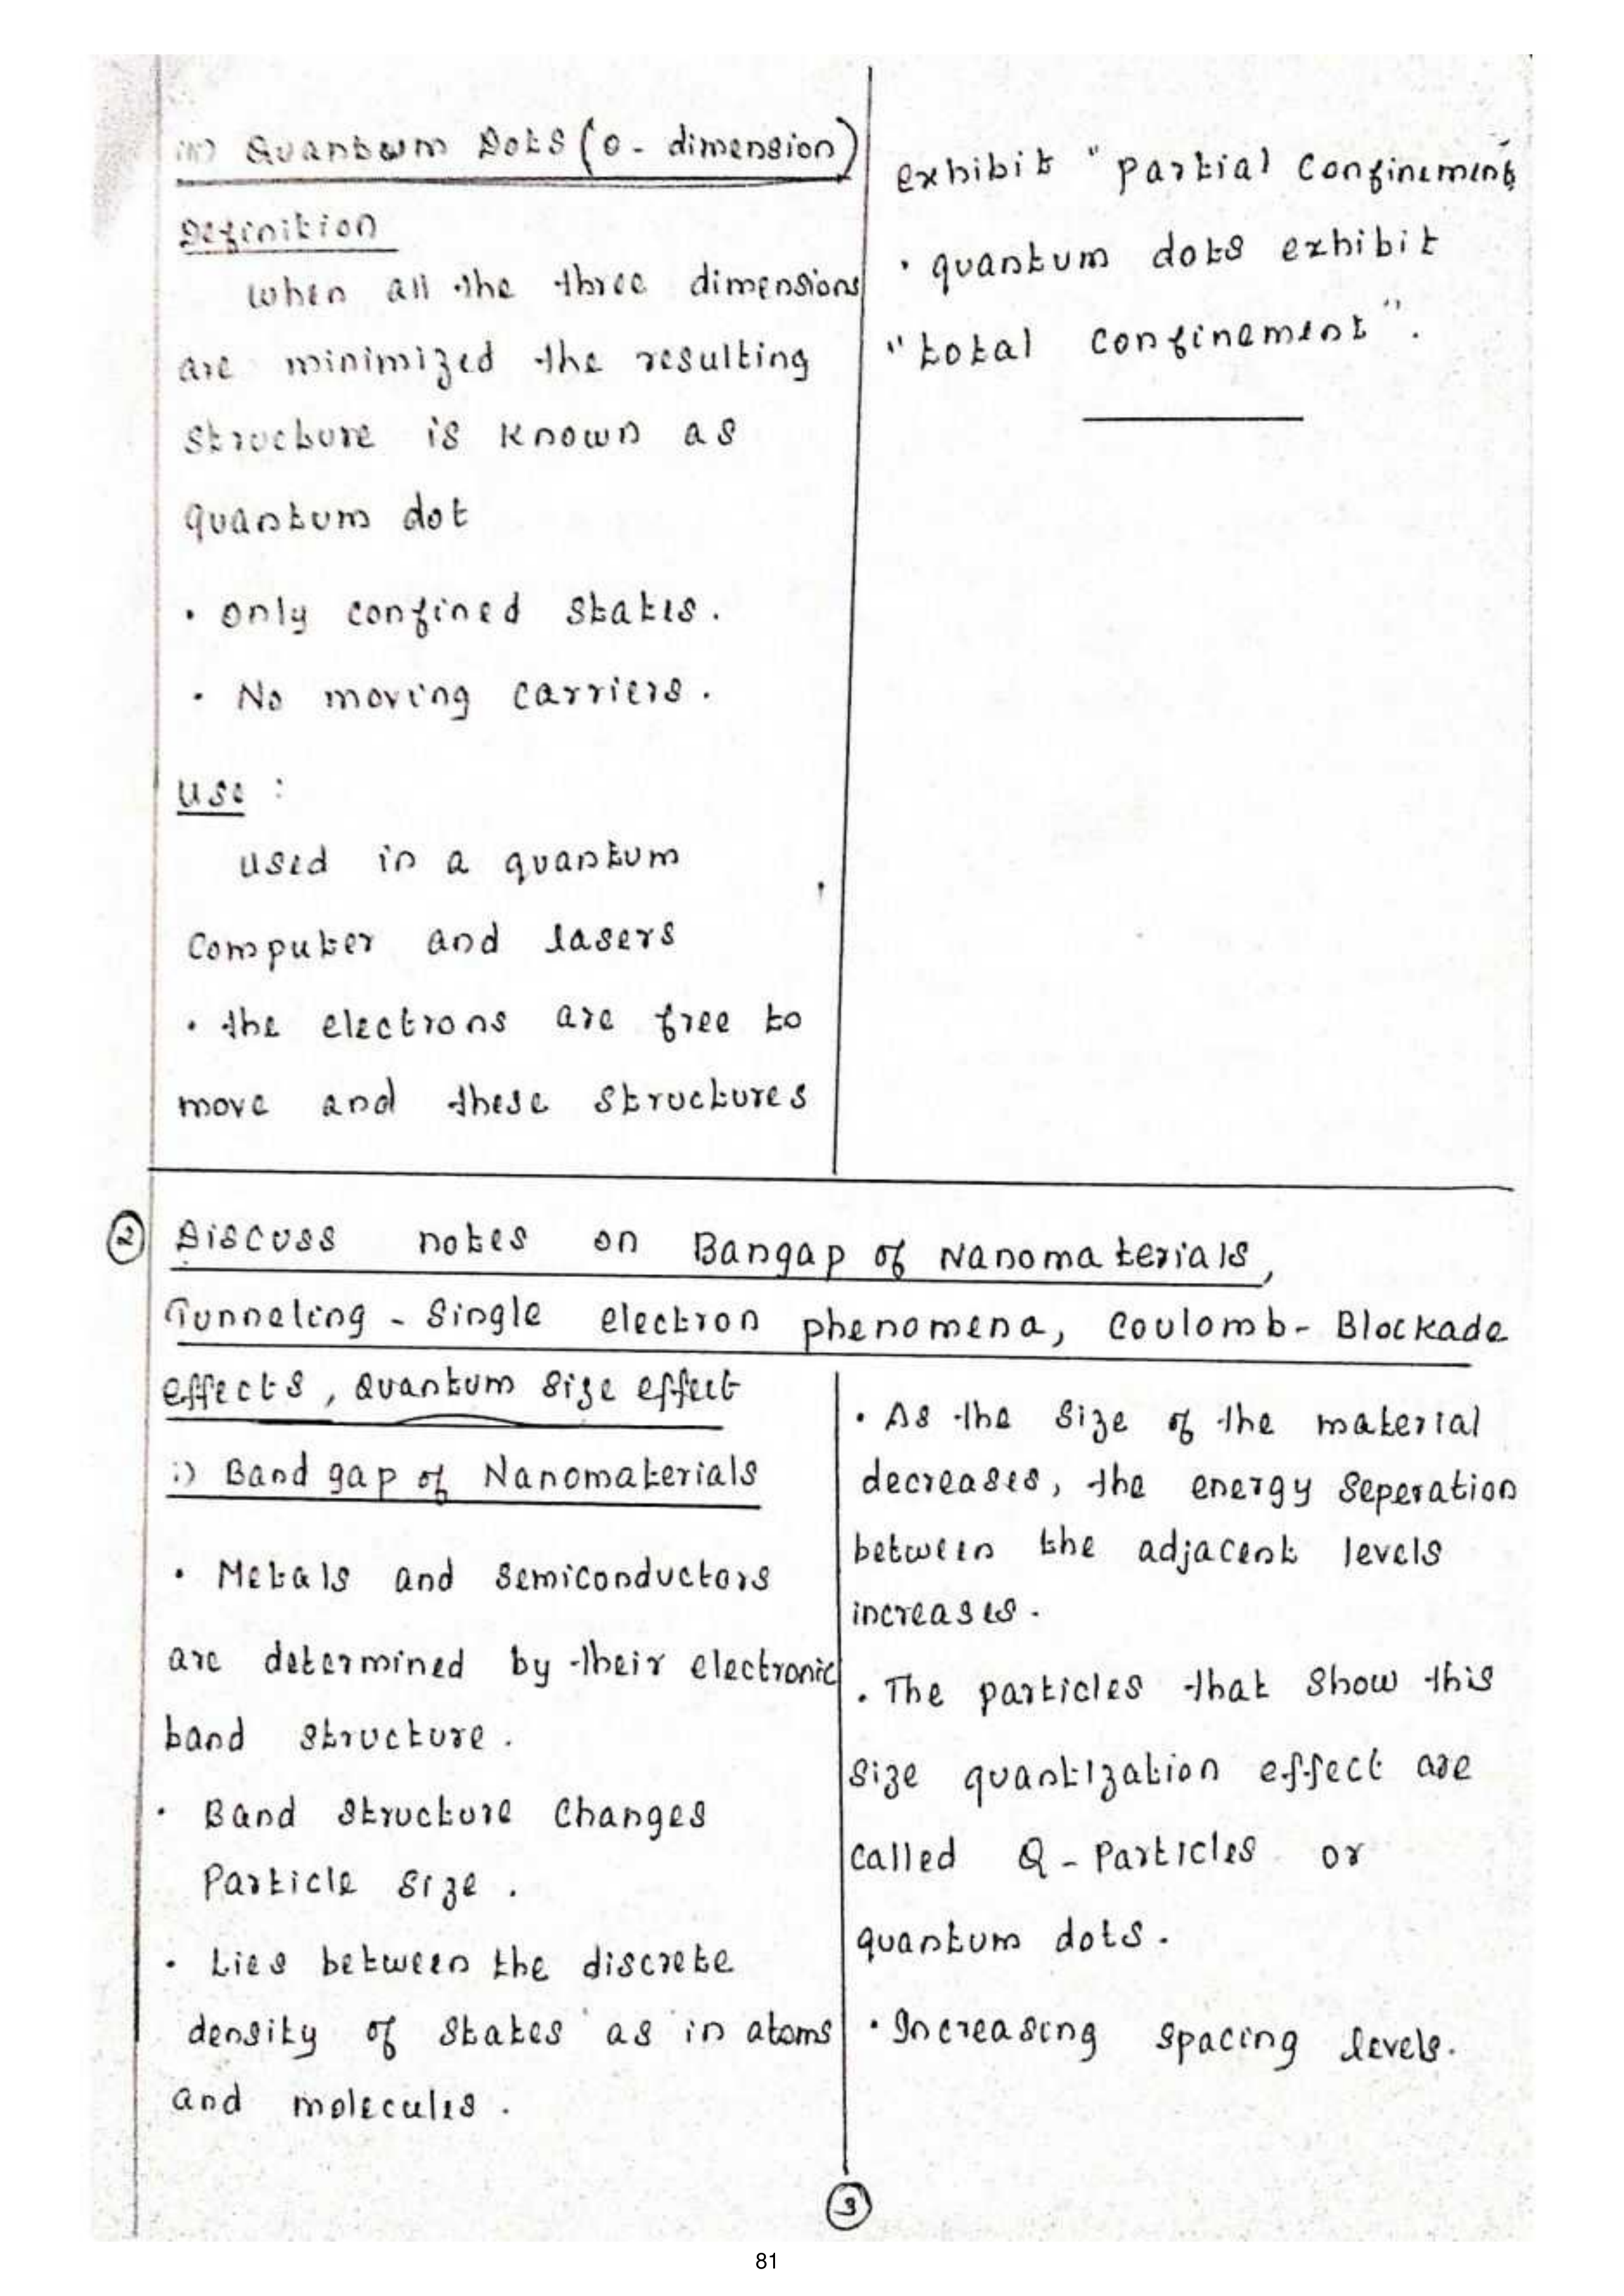 iii) Quantum Dots (0 - dimension)
Definition
When all the three dimensions
are minimized the resulting
structure is known as
quantum dot
• only confined states.
• No moving carriers.
Use :
used in a quantum
Computer and lasers
• the electrons are free to
move and these structures
exhibit "partial confinement
• quantum dots exhibit
"total confinement".
② Discuss notes on Bangap of Nanomaterials,
Tunneling - Single electron phenomena, Coulomb - Blockade
effects, Quantum size effect
i) Band gap of Nanomaterials
• Metals and semiconductors
are determined by their electronic
band structure.
• Band structure Changes
Particle size.
• Lies between the discrete
density of states as in atoms
and molecules.
• As the size of the material
decreases, the energy seperation
between the adjacent levels
increases.
• The particles that show this
size quantization effect are
called Q - Particles or
quantum dots.
• Increasing spacing levels.
③
81